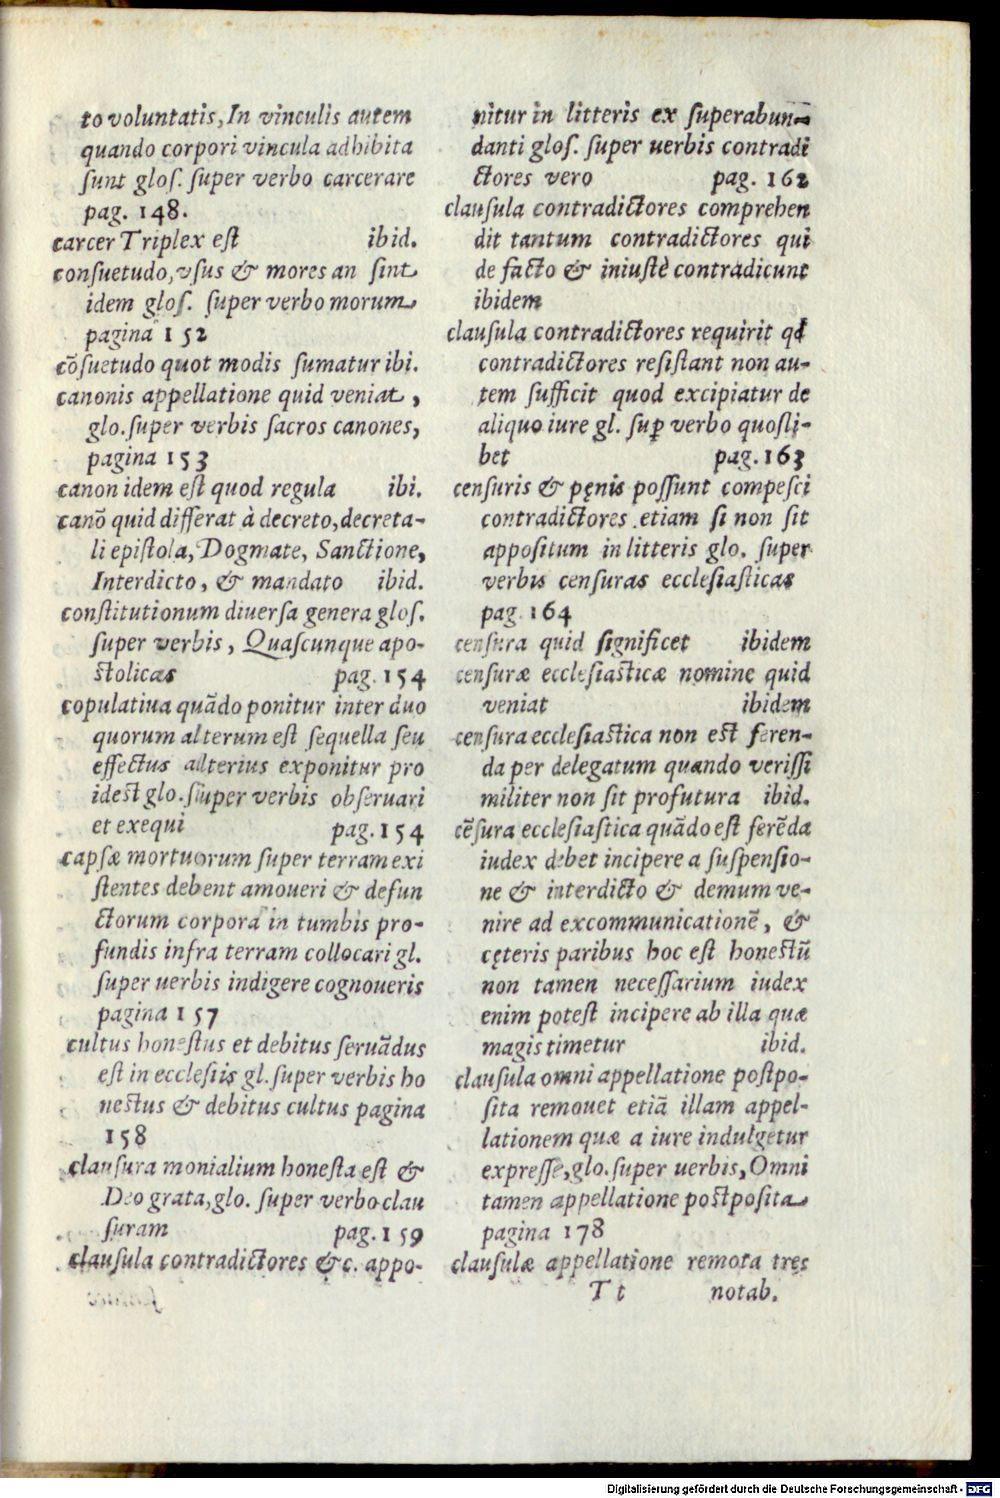 to voluntatis, In vinculis autem
quando corpori vincula adhibita
sunt glos. super verbo carcerare
pag. 148.
carcer Triplex est ibid.
consuetudo, vsus & mores an sint
idem glos. super verbo morum
pagina 152
cōsuetudo quot modis sumatur ibi.
canonis appellatione quid veniat,
glo. super verbis sacros canones,
pagina 153
canon idem est quod regula ibi.
canō quid differat à decreto, decreta-
li epistola, Dogmate, Sanctione,
Interdicto, & mandato ibid.
constitutionum diuersa genera glos.
super verbis, Quascunque apo-
stolicas pag. 154
copulatiua quādo ponitur inter duo
quorum alterum est sequella seu
effectus alterius exponitur pro
idest glo. super verbis obseruari
et exequi pag. 154
capsæ mortuorum super terram exi
stentes debent amoueri & defun
ctorum corpora in tumbis pro-
fundis infra terram collocari gl.
super uerbis indigere cognoueris
pagina 157
cultus honestus et debitus seruādus
est in ecclesiis gl. super verbis ho
nestus & debitus cultus pagina
158
clausura monialium honesta est &
Deo grata, glo. super verbo clau
suram pag. 159
clausula contradictores &c. appo-
nitur in litteris ex superabun-
danti glos. super uerbis contradi
ctores vero pag. 162
clausula contradictores comprehen
dit tantum contradictores qui
de facto & iniustè contradicunt
ibidem
clausula contradictores requirit qd
contradictores resistant non au-
tem sufficit quod excipiatur de
aliquo iure gl. sup verbo quosli-
bet pag. 163
censuris & pęnis possunt compesci
contradictores etiam si non sit
appositum in litteris glo. super
verbis censuras ecclesiasticas
pag. 164
censura quid significet ibidem
censuræ ecclesiasticæ nomine quid
veniat ibidem
censura ecclesiastica non est feren-
da per delegatum quando verissi
militer non sit profutura ibid.
cēsura ecclesiastica quādo est ferēda
iudex debet incipere a suspensio-
ne & interdicto & demum ve-
nire ad excommunicationē, &
cęteris paribus hoc est honestū
non tamen necessarium iudex
enim potest incipere ab illa quæ
magis timetur ibid.
clausula omni appellatione postpo-
sita remouet etiā illam appel-
lationem quæ a iure indulgetur
expresse, glo. super uerbis, Omni
tamen appellatione postposita
pagina 178
clausulæ appellatione remota tres
T t notab.
Digitalisierung gefördert durch die Deutsche Forschungsgemeinschaft - DFG